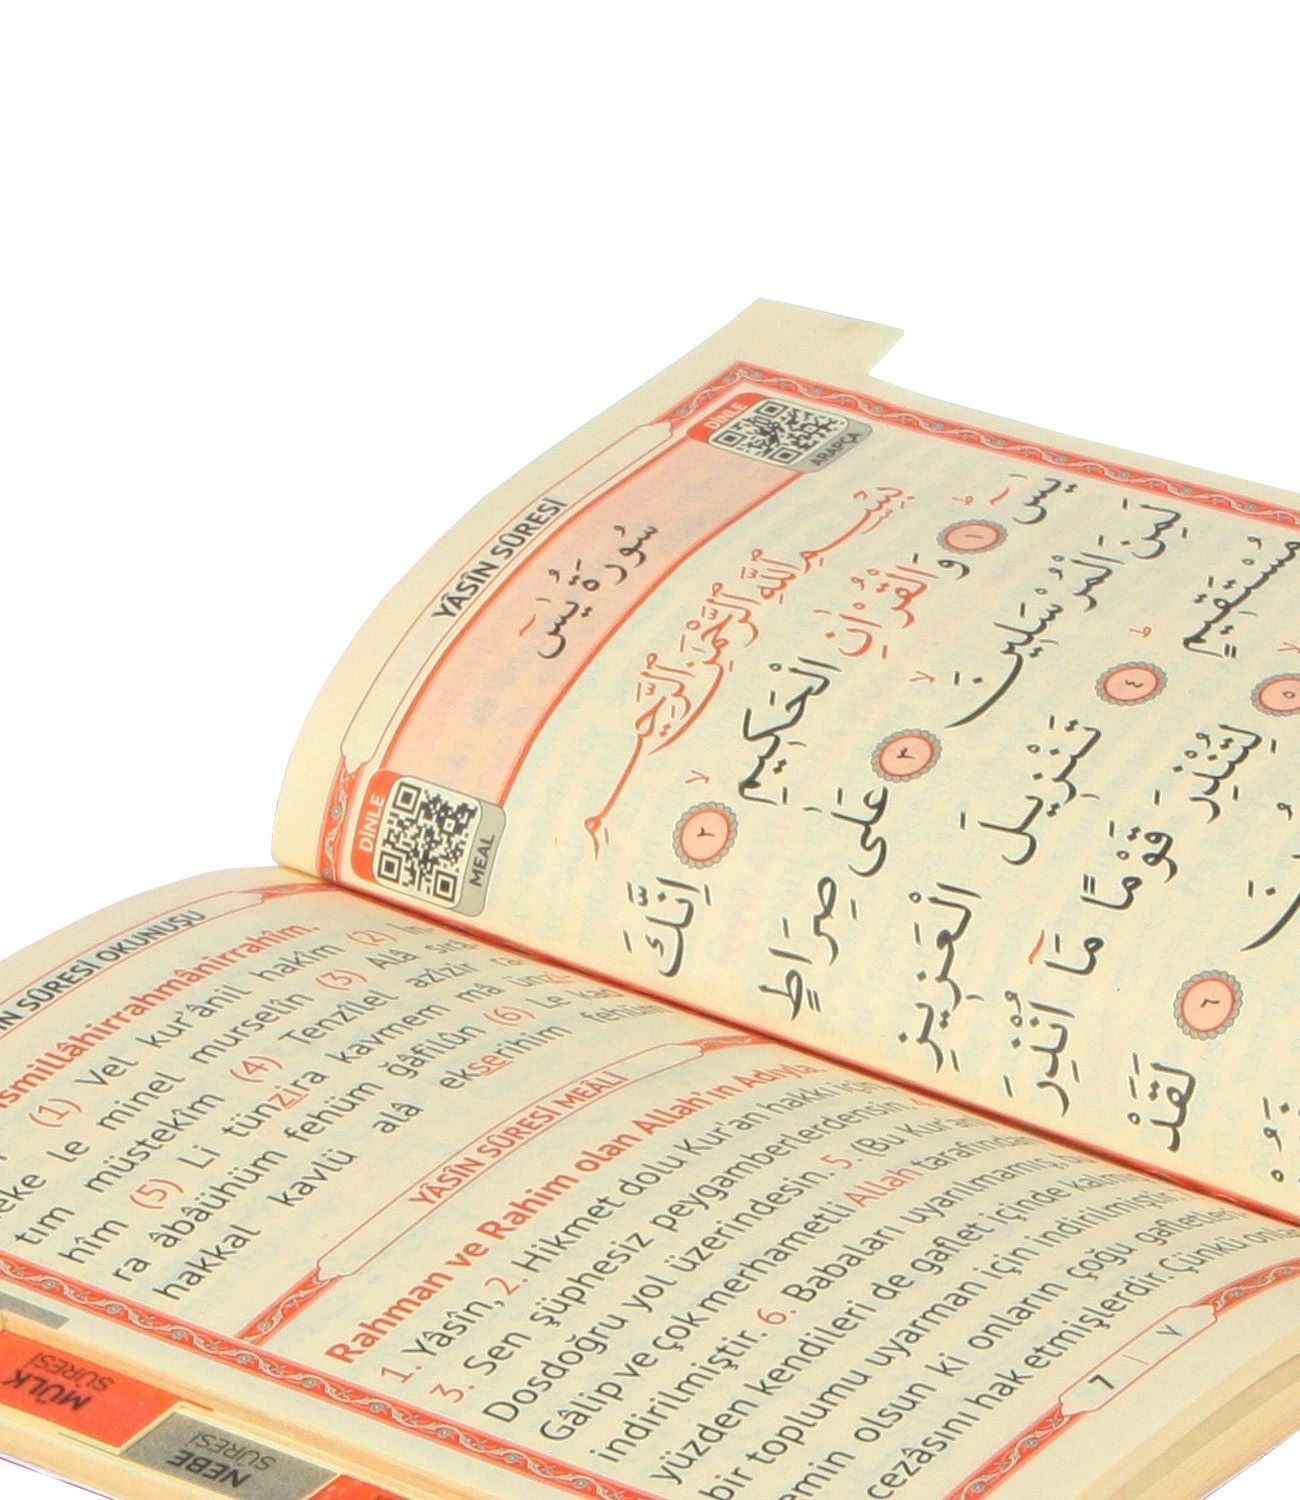 YÂSÎN SÛRESİ
DİNLE
ARAPÇA
سُورَةُ يٰسٓ
DİNLE
MEAL
بِسْمِ اللّٰهِ الرَّحْمٰنِ الرَّحِيمِ
يٰسٓ ١ وَالْقُرْاٰنِ الْحَكِيمِ ٢ اِنَّكَ
لَمِنَ الْمُرْسَلِينَ ٣ عَلٰى صِرَاطٍ
مُسْتَقِيمٍ ٤ تَنْزِيلَ الْعَزِيزِ
٥ لِتُنْذِرَ قَوْمًا مَا اُنْذِرَ
٦ لَقَدْ
SÛRESİ OKUNUŞU
ismillâhirrahmânirrahîm.
(1) Vel kur'ânil hakîm (2) İn-
neke le minel murselîn (3) Alâ sırâ-
tim müstekîm (4) Tenzîlel azîzir ra-
hîm (5) Li tünzira kavmem mâ ünzi-
ra âbâühüm fehüm ğâfilûn (6) Le kad
hakkal kavlü alâ ekserihim fehüm
YÂSÎN SÛRESİ MEÂLİ
Rahman ve Rahim olan Allah'ın Adıyla.
1. Yâsîn, 2. Hikmet dolu Kur'an hakkı için
3. Sen şüphesiz peygamberlerdensin.
Dosdoğru yol üzerindesin. 5. (Bu Kur'an)
Gâlip ve çok merhametli Allah tarafından
indirilmiştir. 6. Babaları uyarılmamış,
yüzden kendileri de gaflet içinde
bir toplumu uyarman için indirilmiştir.
olsun ki onların çoğu gafletleri
cezâsını hak etmişlerdir. Çünkü
7 | ٧
MÜLK
SÛRESİ
NEBE
SÛRESİ